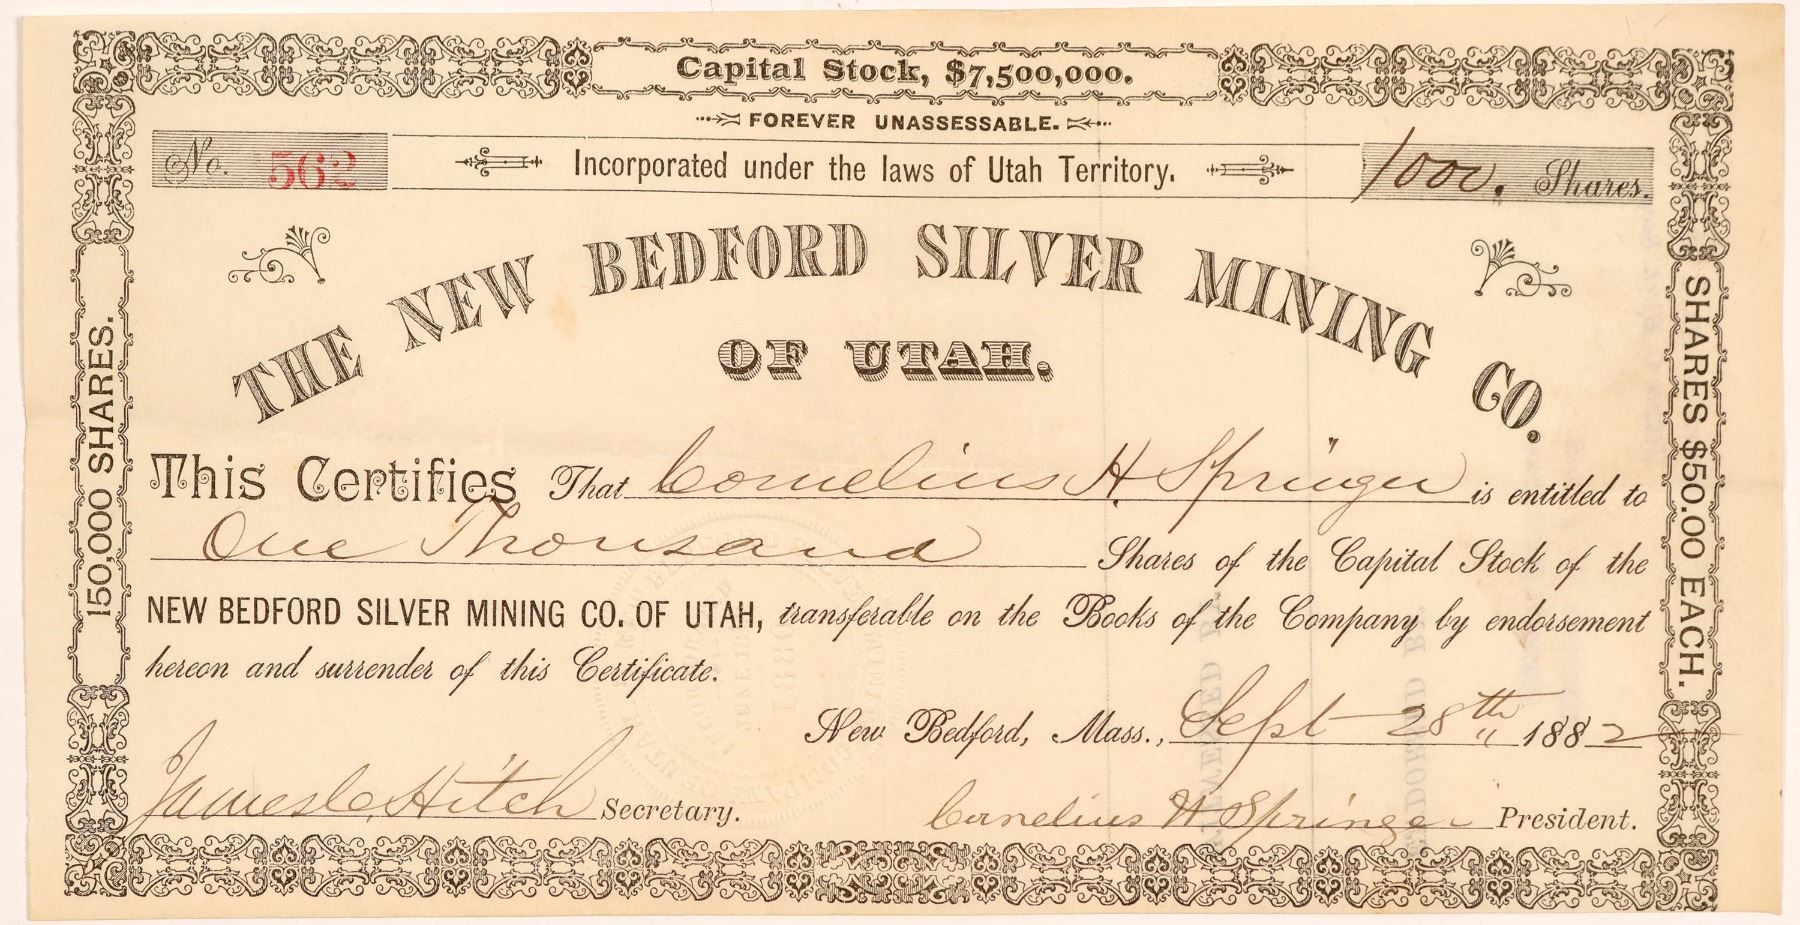 Capital Stock, $7,500,000.
FOREVER UNASSESSABLE.
No. 562 Incorporated under the laws of Utah Territory. 1000. Shares.
THE NEW BEDFORD SILVER MINING CO.
OF UTAH.
150,000 SHARES.
SHARES $50.00 EACH.
This Certifies That Cornelius H. Springer is entitled to
One Thousand Shares of the Capital Stock of the
NEW BEDFORD SILVER MINING CO. OF UTAH, transferable on the Books of the Company by endorsement
hereon and surrender of this Certificate.
New Bedford, Mass., Sept 28th 1882
James C. Hitch Secretary. Cornelius H Springer President.